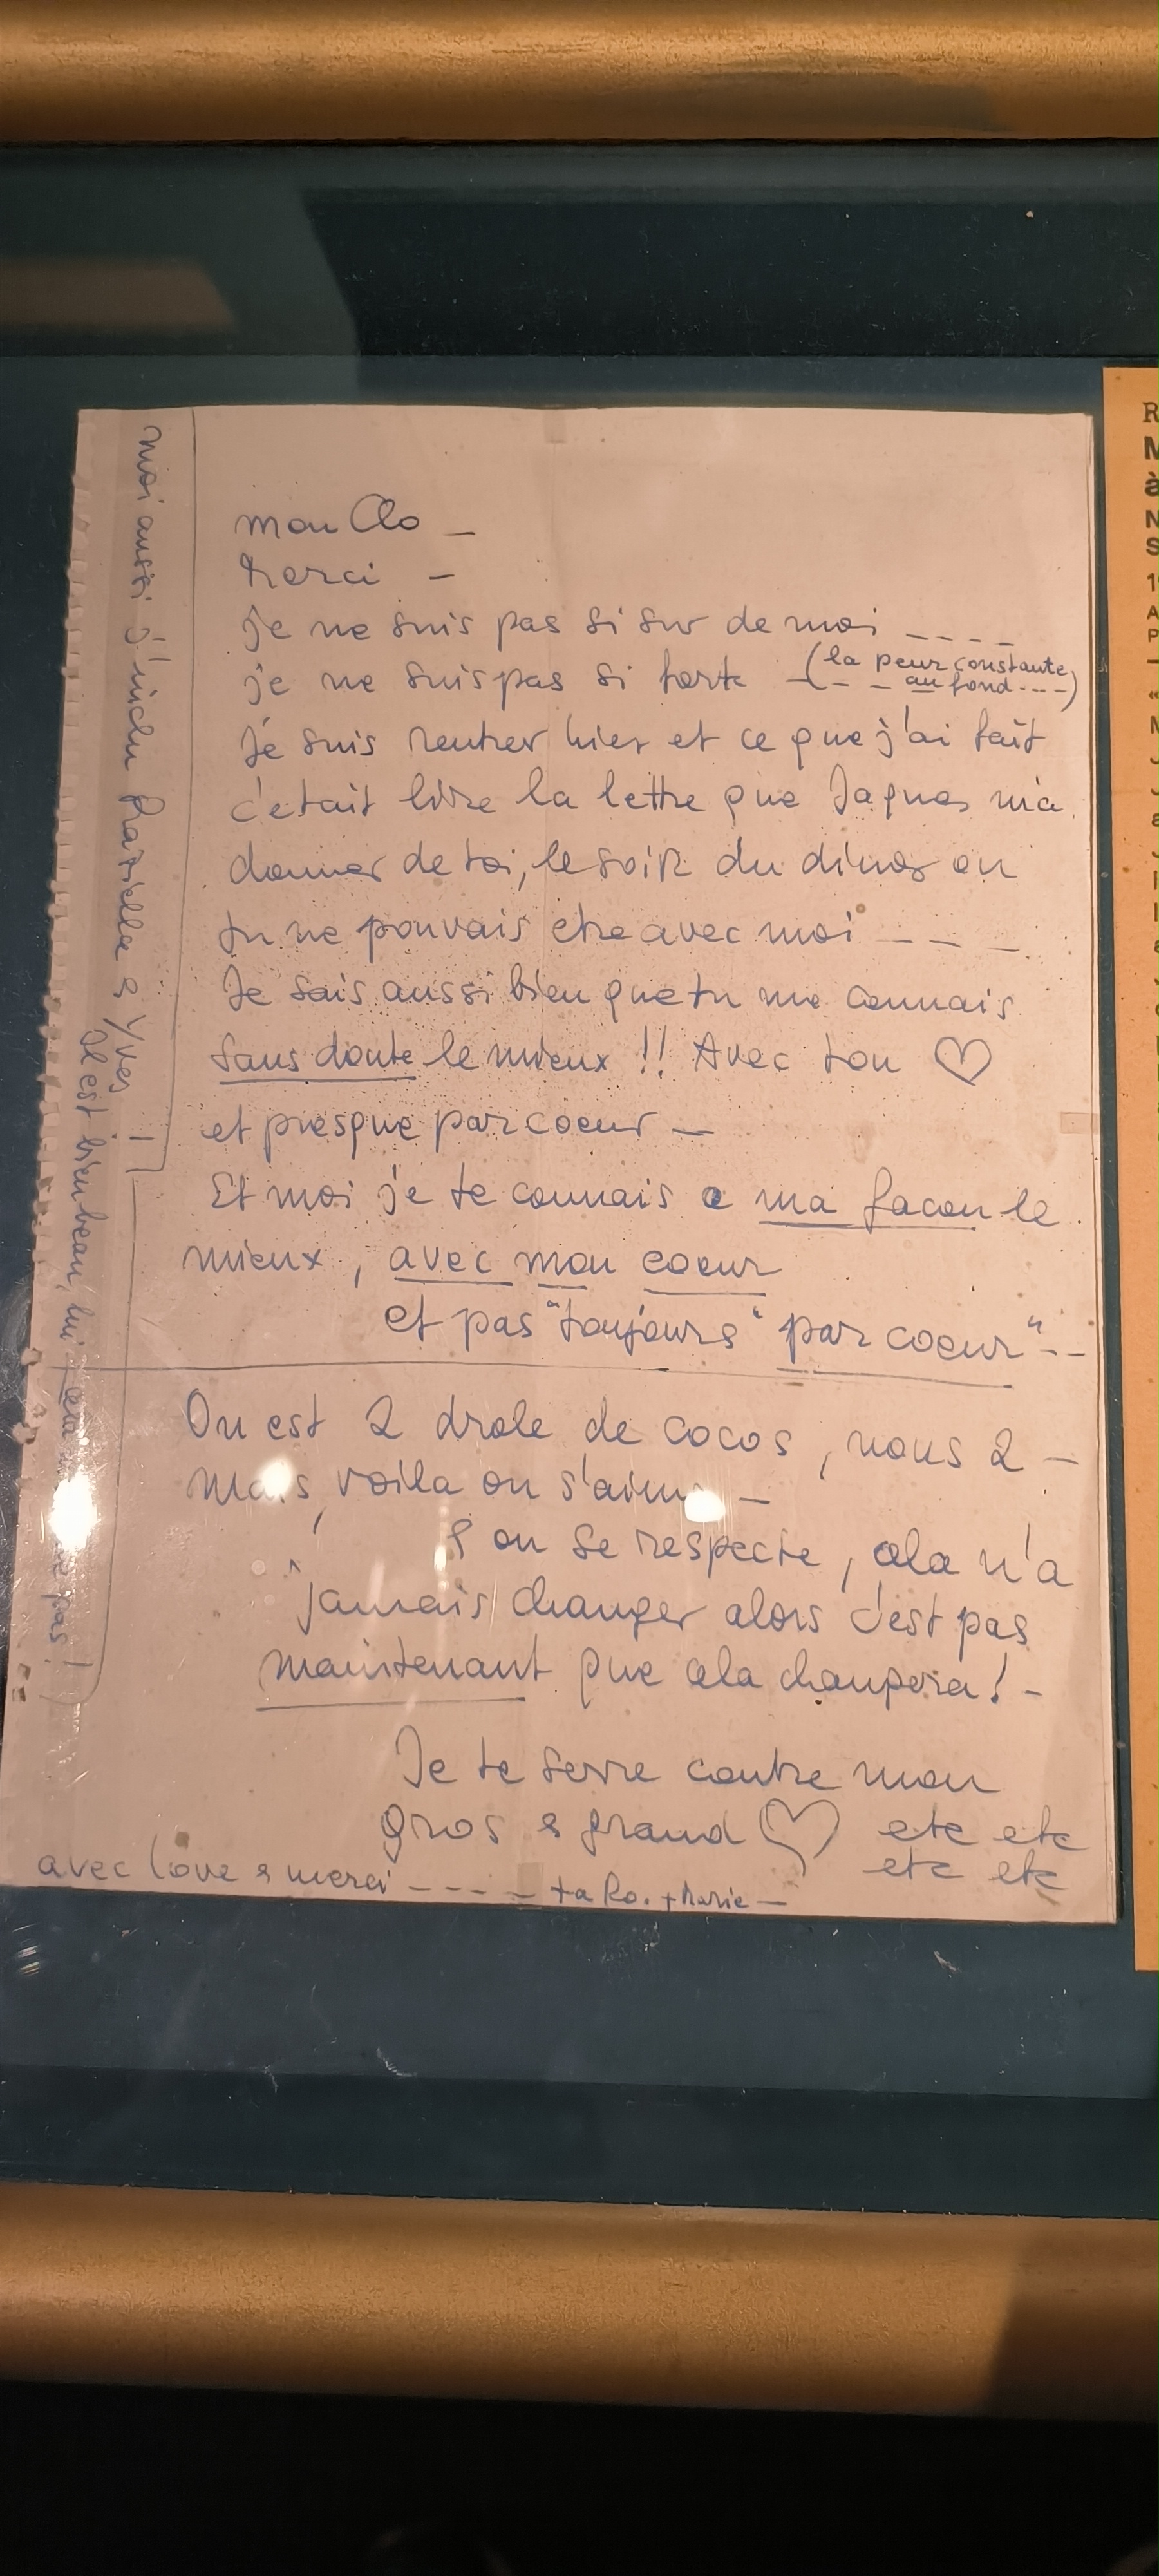 mon Clo –
Merci –
je ne suis pas si sur de moi ----
je ne suis pas si forte --- (la peur constante
au fond ----)
Je suis rentrer hier et ce que j'ai fait
c'etait lire la lettre que Jaques m'a
donner de toi, le soir du diner ou
tu ne pouvais etre avec moi ----
Je sais aussi bien que tu me connais
sans doute le mieux !! Avec ton ♡
et presque par coeur –
Et moi je te connais a ma facon le
mieux, avec mon coeur
et pas "toujours" "par coeur" --
On est 2 drole de cocos, nous 2 –
Mais, voila on s'aime –
& on se respecte, cela n'a
jamais changer alors c'est pas
maintenant que cela changera! –
Je te serre contre mon
gros & grand ♡ etc etc
etc etc
avec love & merci ---- ta Ro. + Marie –
moi aussi j'inclu & Yves –
Il est bien beau, lui pas!)
R
M
à
N
S